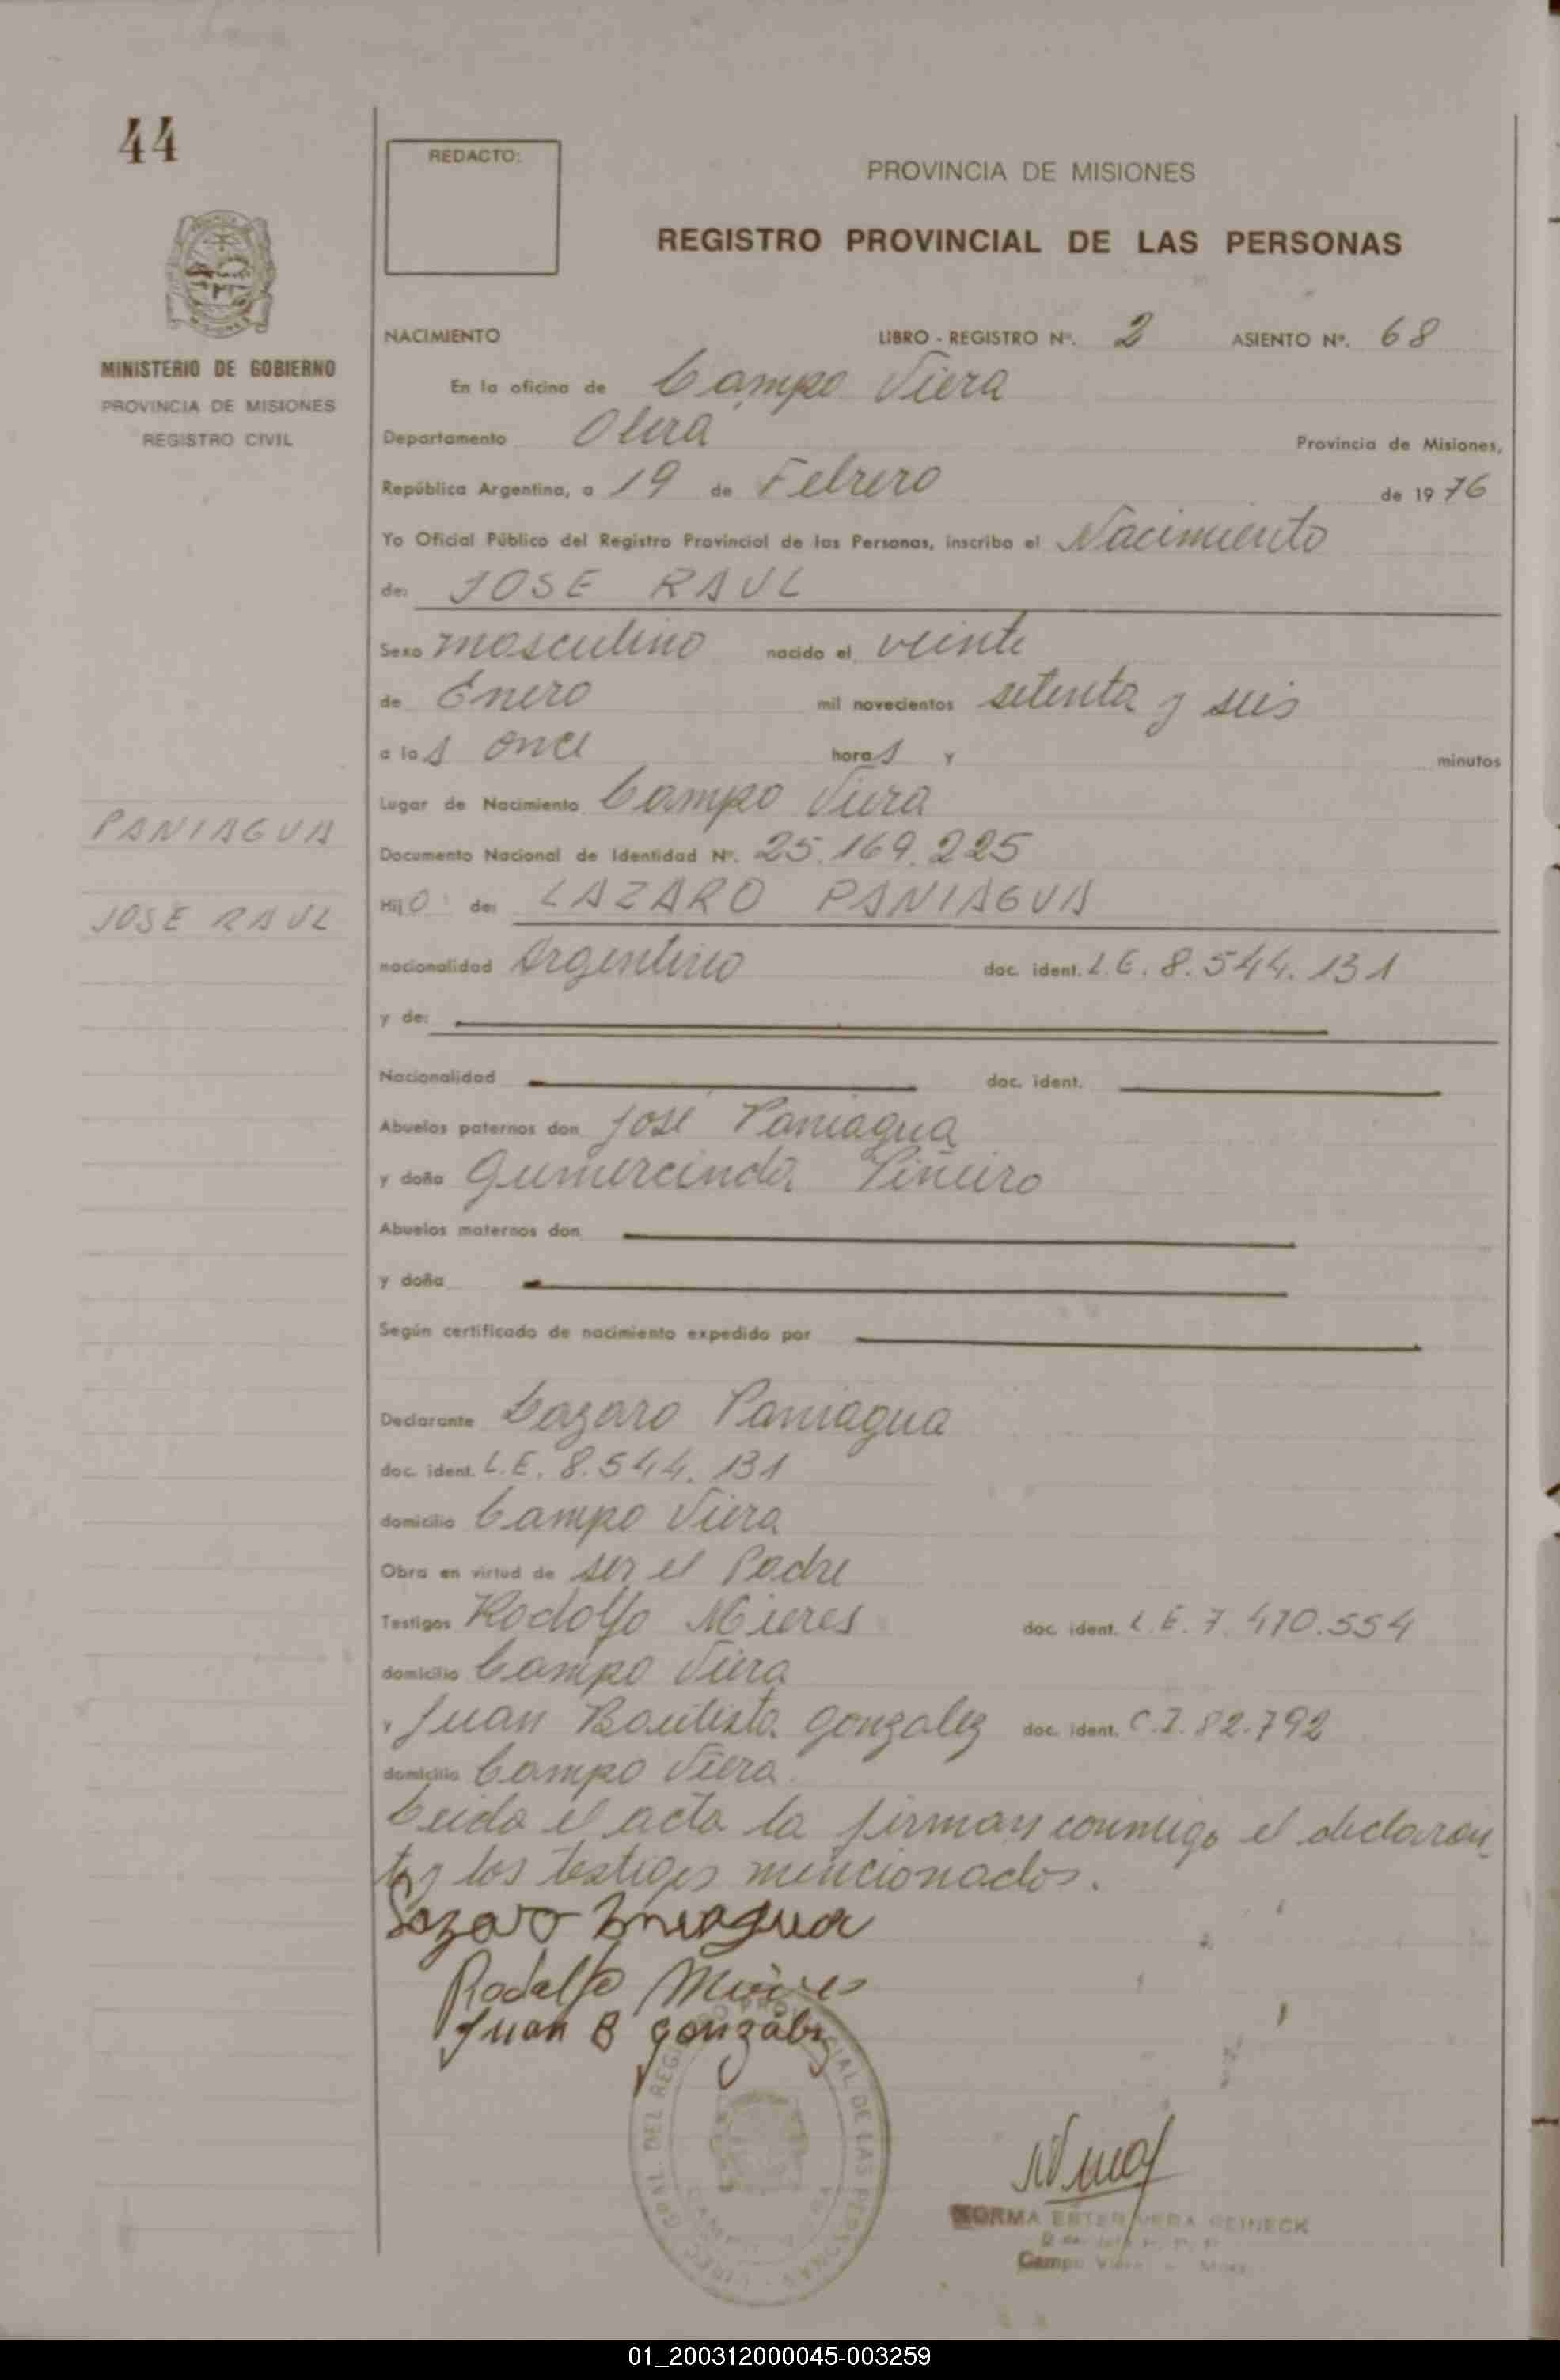 44
REDACTO:
PROVINCIA DE MISIONES
REGISTRO PROVINCIAL DE LAS PERSONAS
MINISTERIO DE GOBIERNO
PROVINCIA DE MISIONES
REGISTRO CIVIL
NACIMIENTO LIBRO - REGISTRO Nº. 2 ASIENTO Nº. 68
En la oficina de Campo Viera
Departamento Oberá Provincia de Misiones,
República Argentina, a 19 de Febrero de 1976
Yo Oficial Público del Registro Provincial de las Personas, inscribo el Nacimiento
de: JOSE RAUL
Sexo masculino nacido el veinte
de Enero mil novecientos setenta y seis
a las once horas y minutos
Lugar de Nacimiento Campo Viera
PANIAGUA
Documento Nacional de Identidad Nº. 25.169.225
JOSE RAUL
Hijo de: LAZARO PANIAGUA
nacionalidad Argentino doc. ident. L.E. 8.544.131
y de:
Nacionalidad doc. ident.
Abuelos paternos don José Paniagua
y doña Gumercinda Piñeiro
Abuelos maternos don
y doña
Según certificado de nacimiento expedido por
Declarante Lazaro Paniagua
doc. ident. L.E. 8.544.131
domicilio Campo Viera
Obra en virtud de ser el Padre
Testigos Rodolfo Mieres doc. ident. L.E. 7.470.554
domicilio Campo Viera
y Juan Bautista Gonzalez doc. ident. C.I. 82.792
domicilio Campo Viera
Leida el acta la firman conmigo el declaran
te y los testigos mencionados.
Lazaro Paniagua
Rodolfo Mieres
Juan B González
GRAL. DEL REGISTRO PROVINCIAL DE LAS PERSONAS
NORMA ESTER VERA REINECK
Campo Viera
01_200312000045-003259